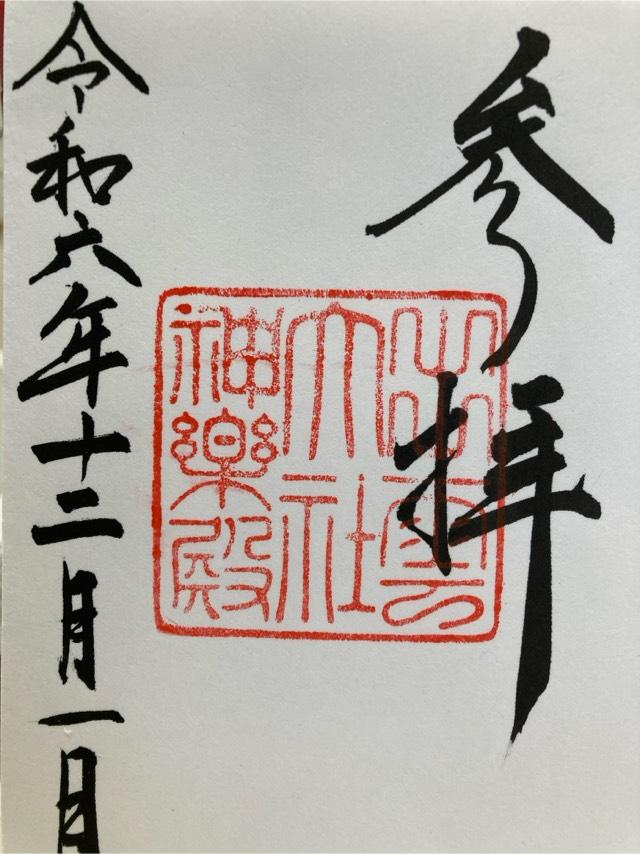 参拝
出雲
大社
神樂殿
令和六年十二月一日